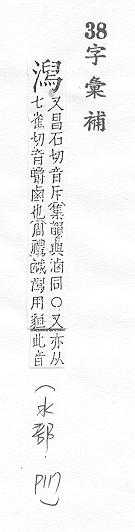 38 字彙補
潟 又昌石切音斥集韻與滷同〇又亦从
七雀切音鵲鹵也周禮鹹潟用貆此音
(水部, P117)